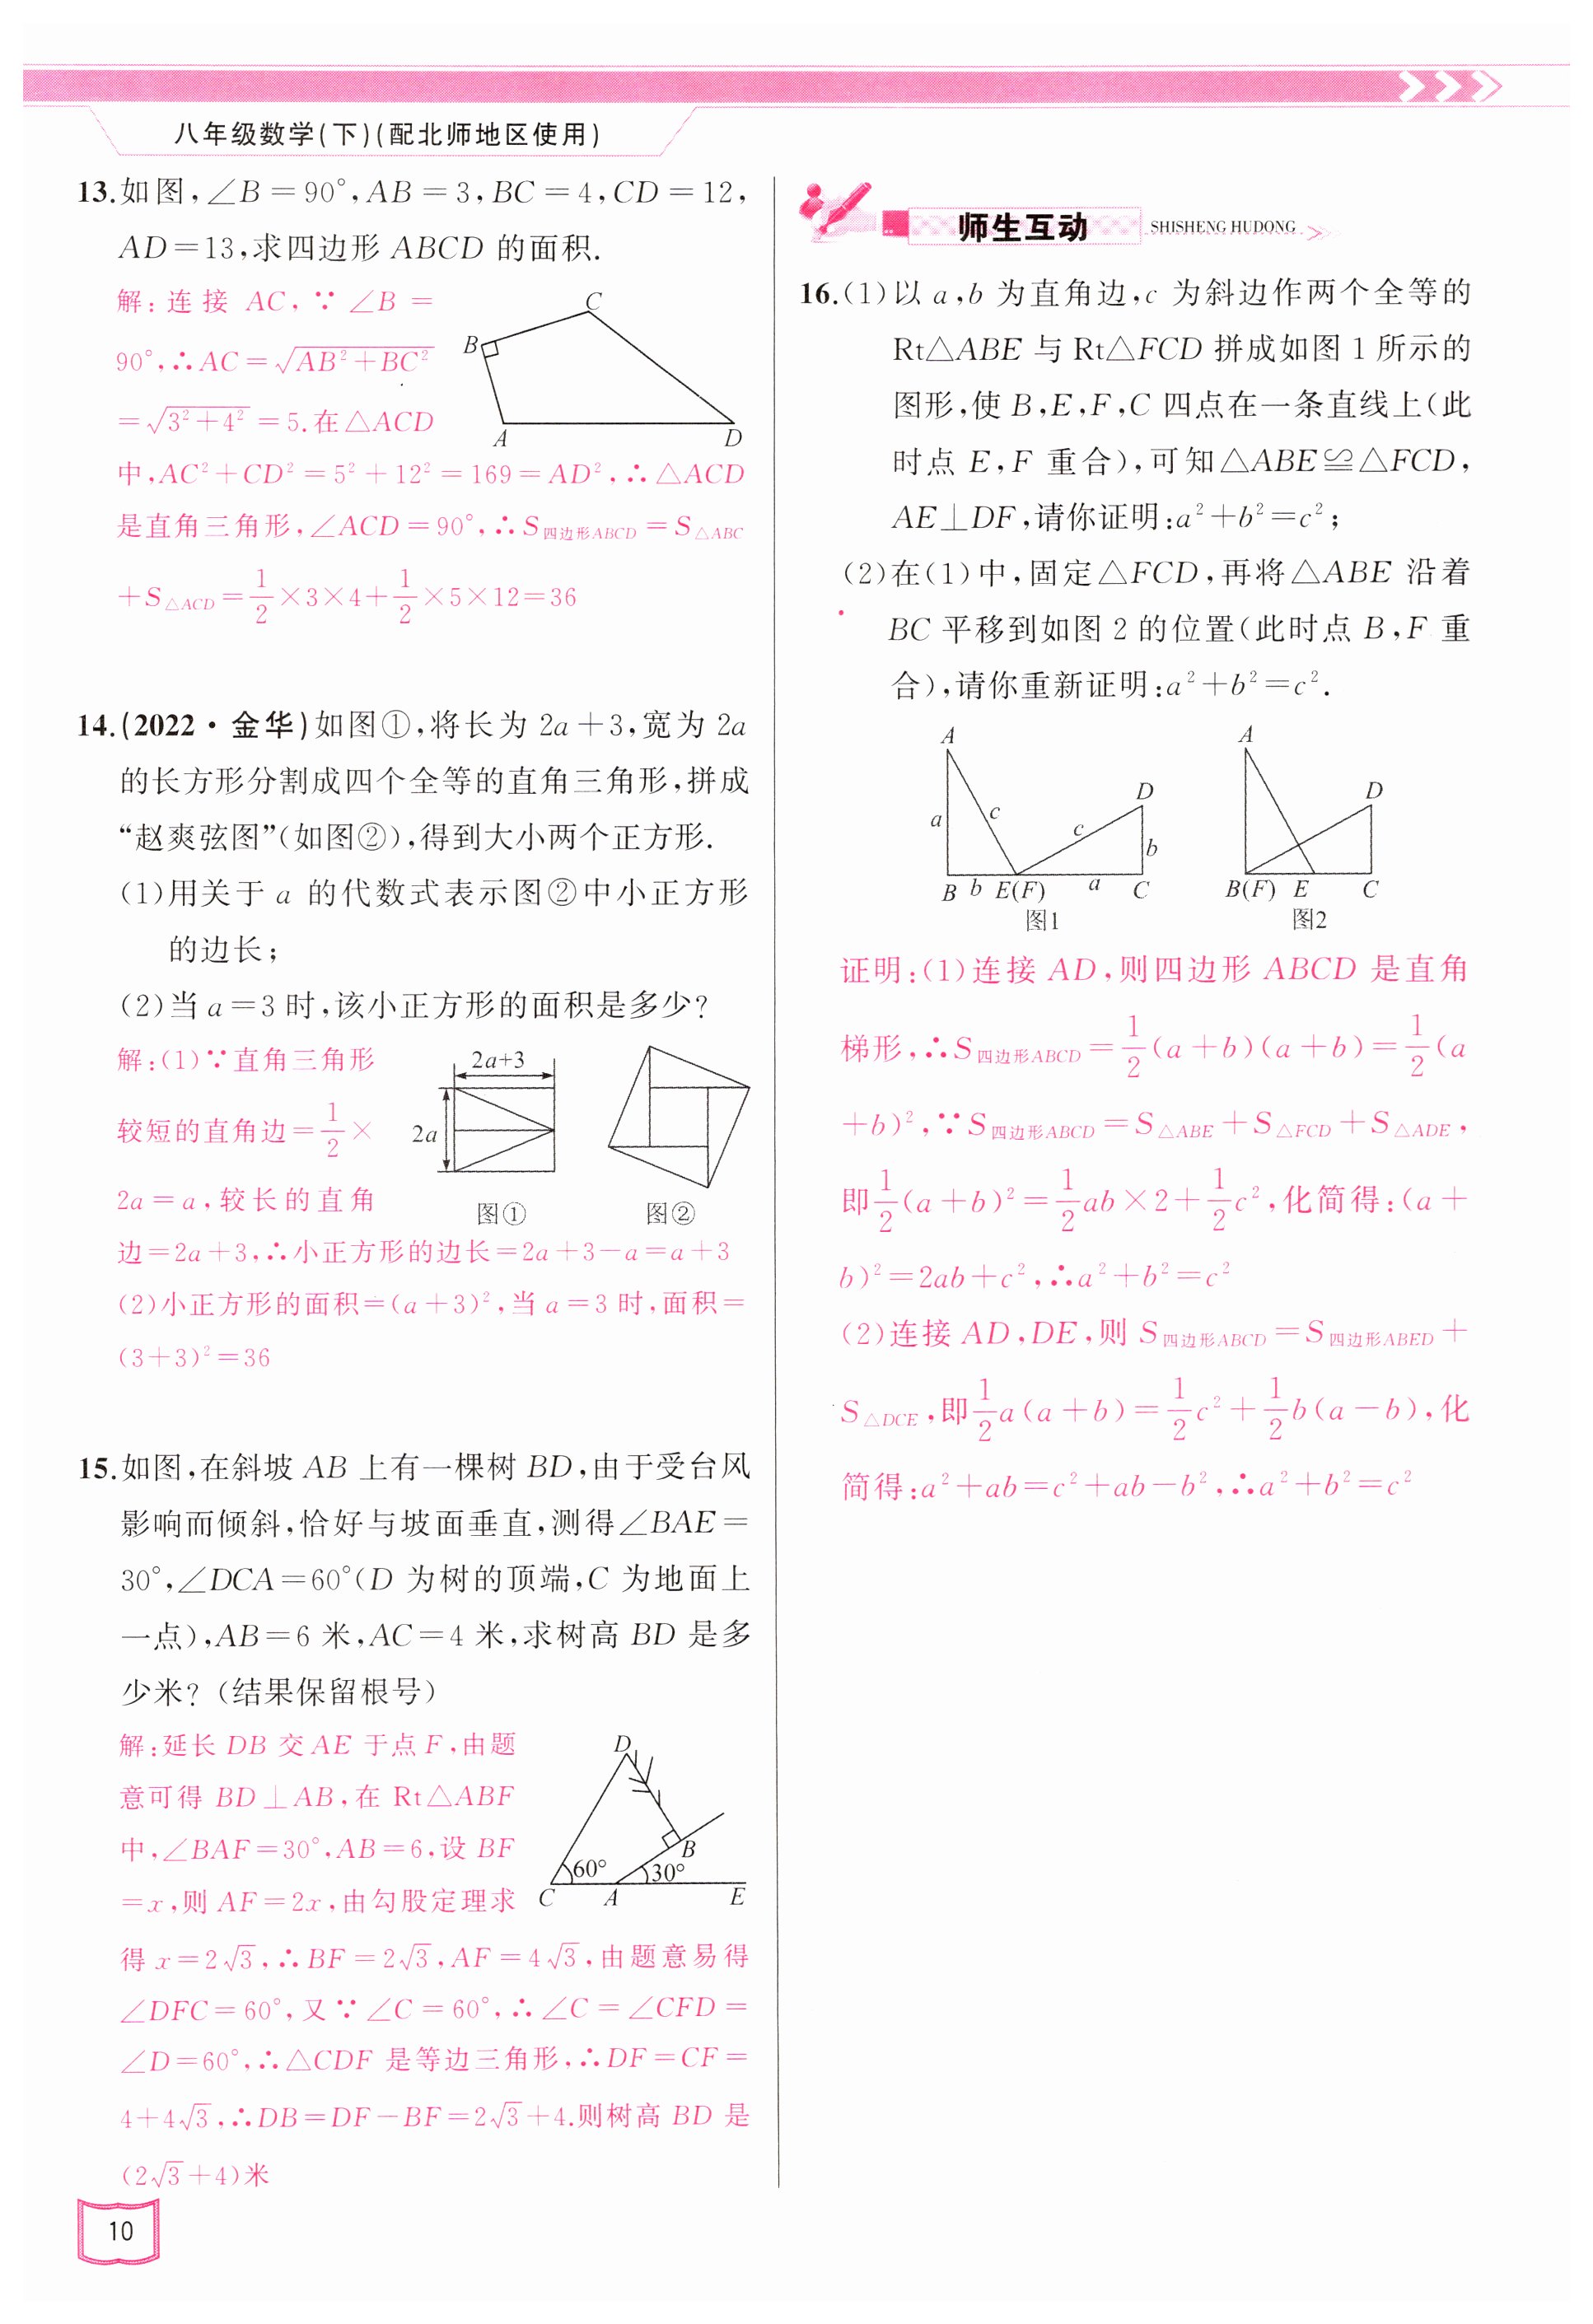 八年级数学(下)(配北师地区使用)
13.如图,∠B=90°,AB=3,BC=4,CD=12,
AD=13,求四边形 ABCD 的面积.
解:连接 AC,∵∠B=
90°,∴AC=√(AB²+BC²)
=√(3²+4²)=5.在△ACD
中,AC²+CD²=5²+12²=169=AD²,∴△ACD
是直角三角形,∠ACD=90°,∴S四边形ABCD=S△ABC
+S△ACD=1/2×3×4+1/2×5×12=36
B
C
A
D
14.(2022·金华)如图①,将长为 2a+3,宽为 2a
的长方形分割成四个全等的直角三角形,拼成
“赵爽弦图”(如图②),得到大小两个正方形.
(1)用关于 a 的代数式表示图②中小正方形
的边长;
(2)当 a=3 时,该小正方形的面积是多少?
解:(1)∵直角三角形
较短的直角边=1/2×
2a=a,较长的直角
边=2a+3,∴小正方形的边长=2a+3-a=a+3
(2)小正方形的面积=(a+3)²,当 a=3 时,面积=
(3+3)²=36
2a+3
2a
图①
图②
15.如图,在斜坡 AB 上有一棵树 BD,由于受台风
影响而倾斜,恰好与坡面垂直,测得∠BAE=
30°,∠DCA=60°(D 为树的顶端,C 为地面上
一点),AB=6 米,AC=4 米,求树高 BD 是多
少米?(结果保留根号)
解:延长 DB 交 AE 于点 F,由题
意可得 BD⊥AB,在 Rt△ABF
中,∠BAF=30°,AB=6,设 BF
=x,则 AF=2x,由勾股定理求
得 x=2√3,∴BF=2√3,AF=4√3,由题意易得
∠DFC=60°,又∵∠C=60°,∴∠C=∠CFD=
∠D=60°,∴△CDF 是等边三角形,∴DF=CF=
4+4√3,∴DB=DF-BF=2√3+4.则树高 BD 是
(2√3+4)米
D
B
60°
30°
C
A
E
10
师生互动 SHISHENG HUDONG
16.(1)以 a,b 为直角边,c 为斜边作两个全等的
Rt△ABE 与 Rt△FCD 拼成如图 1 所示的
图形,使 B,E,F,C 四点在一条直线上(此
时点 E,F 重合),可知△ABE≌△FCD,
AE⊥DF,请你证明:a²+b²=c²;
(2)在(1)中,固定△FCD,再将△ABE 沿着
BC 平移到如图 2 的位置(此时点 B,F 重
合),请你重新证明:a²+b²=c².
A
D
a
c
c
b
B b E(F) a C
图1
A
D
B(F) E C
图2
证明:(1)连接 AD,则四边形 ABCD 是直角
梯形,∴S四边形ABCD=1/2(a+b)(a+b)=1/2(a
+b)²,∵S四边形ABCD=S△ABE+S△FCD+S△ADE,
即1/2(a+b)²=1/2ab×2+1/2c²,化简得:(a+
b)²=2ab+c²,∴a²+b²=c²
(2)连接 AD,DE,则 S四边形ABCD=S四边形ABED+
S△DCE,即1/2a(a+b)=1/2c²+1/2b(a-b),化
简得:a²+ab=c²+ab-b²,∴a²+b²=c²